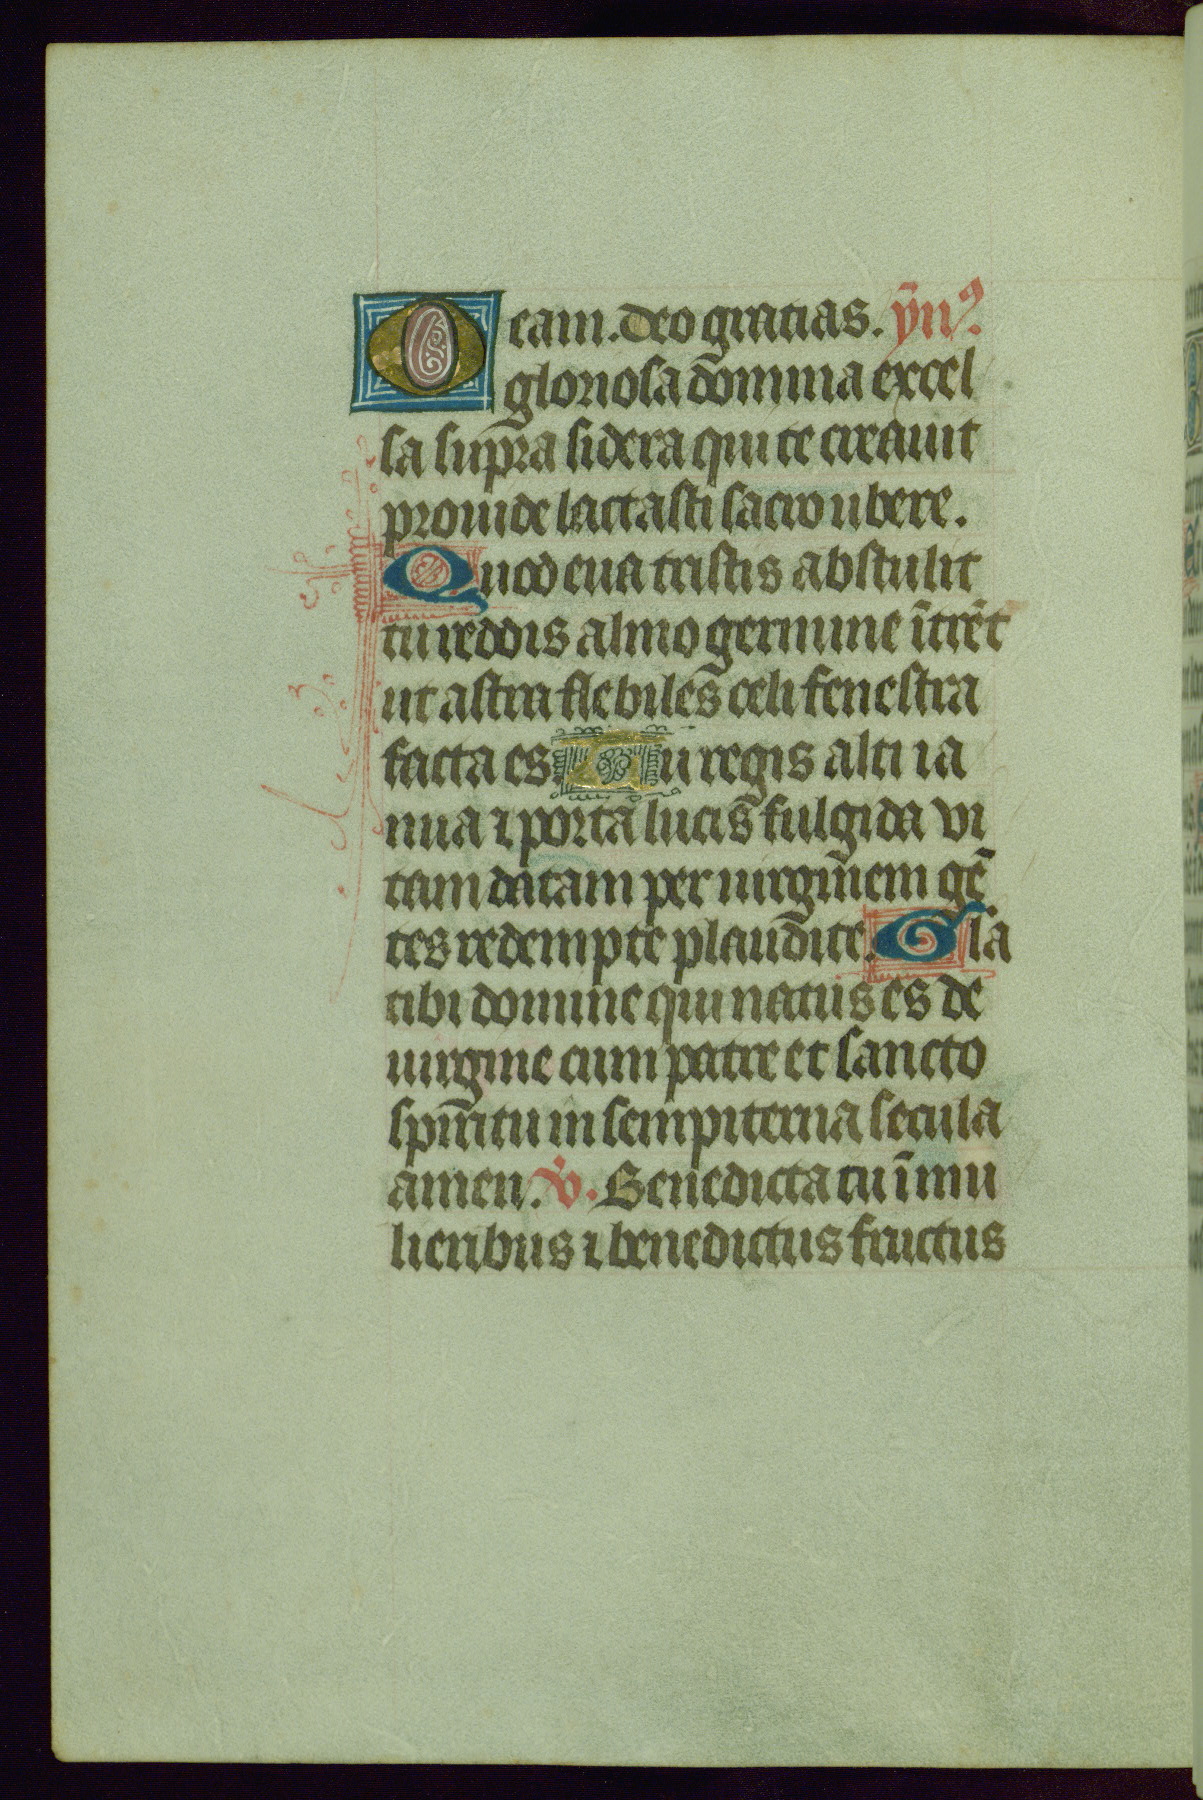 eam. deo gratias. ȳnꝰ.
O gloriosa domina excel
sa supra sidera qui te creauit
prouide lactasti sacro ubere.
Quod eua tristis abstulit
tu reddis almo germine ītrēt
ut astra flebiles celi fenestra
facta es Tu regis alti ia
nua ⁊ porta lucis fulgida vi
tam datam per uirginem gē
tes redempte plaudite. Gl̄a
tibi domine qui natus es de
uirgine cum patre et sancto
spiritu in sempiterna secula
amen. v̄. Benedicta tu ī mu
lieribus ⁊ benedictus fructus